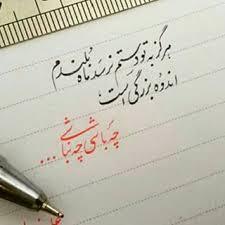 هرگز به تو دستم نرسد ماه بلندم
اندوه بزرگی است
چه باشی چه نباشی ...